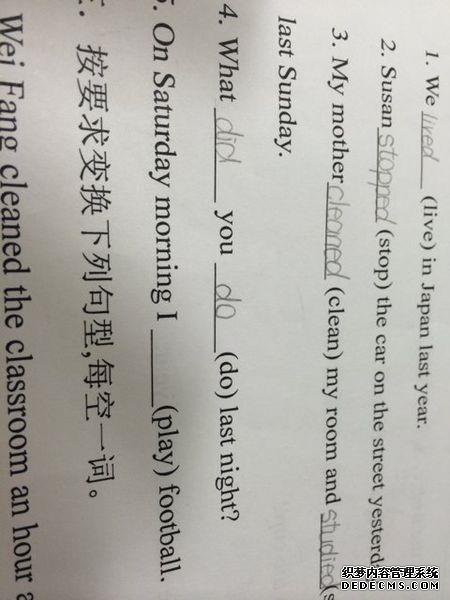 1. We lived (live) in Japan last year.
2. Susan stopped (stop) the car on the street yesterd
3. My mother cleaned (clean) my room and studied (s
last Sunday.
4. What did you do (do) last night?
5. On Saturday morning I ______ (play) football.
. 按要求变换下列句型,每空一词。
Wei Fang cleaned the classroom an hour a
织梦内容管理系统
DEDECMS.COM